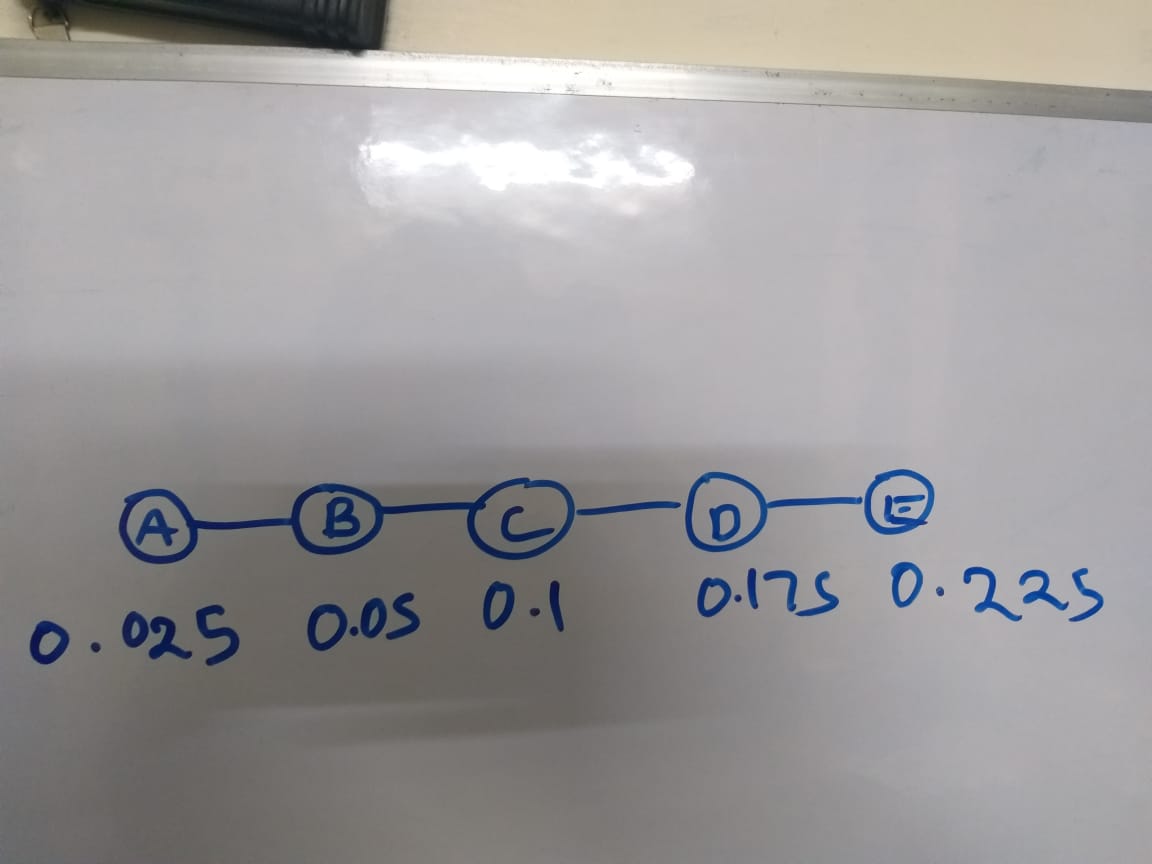 A B C D E
0.025 0.05 0.1 0.175 0.225